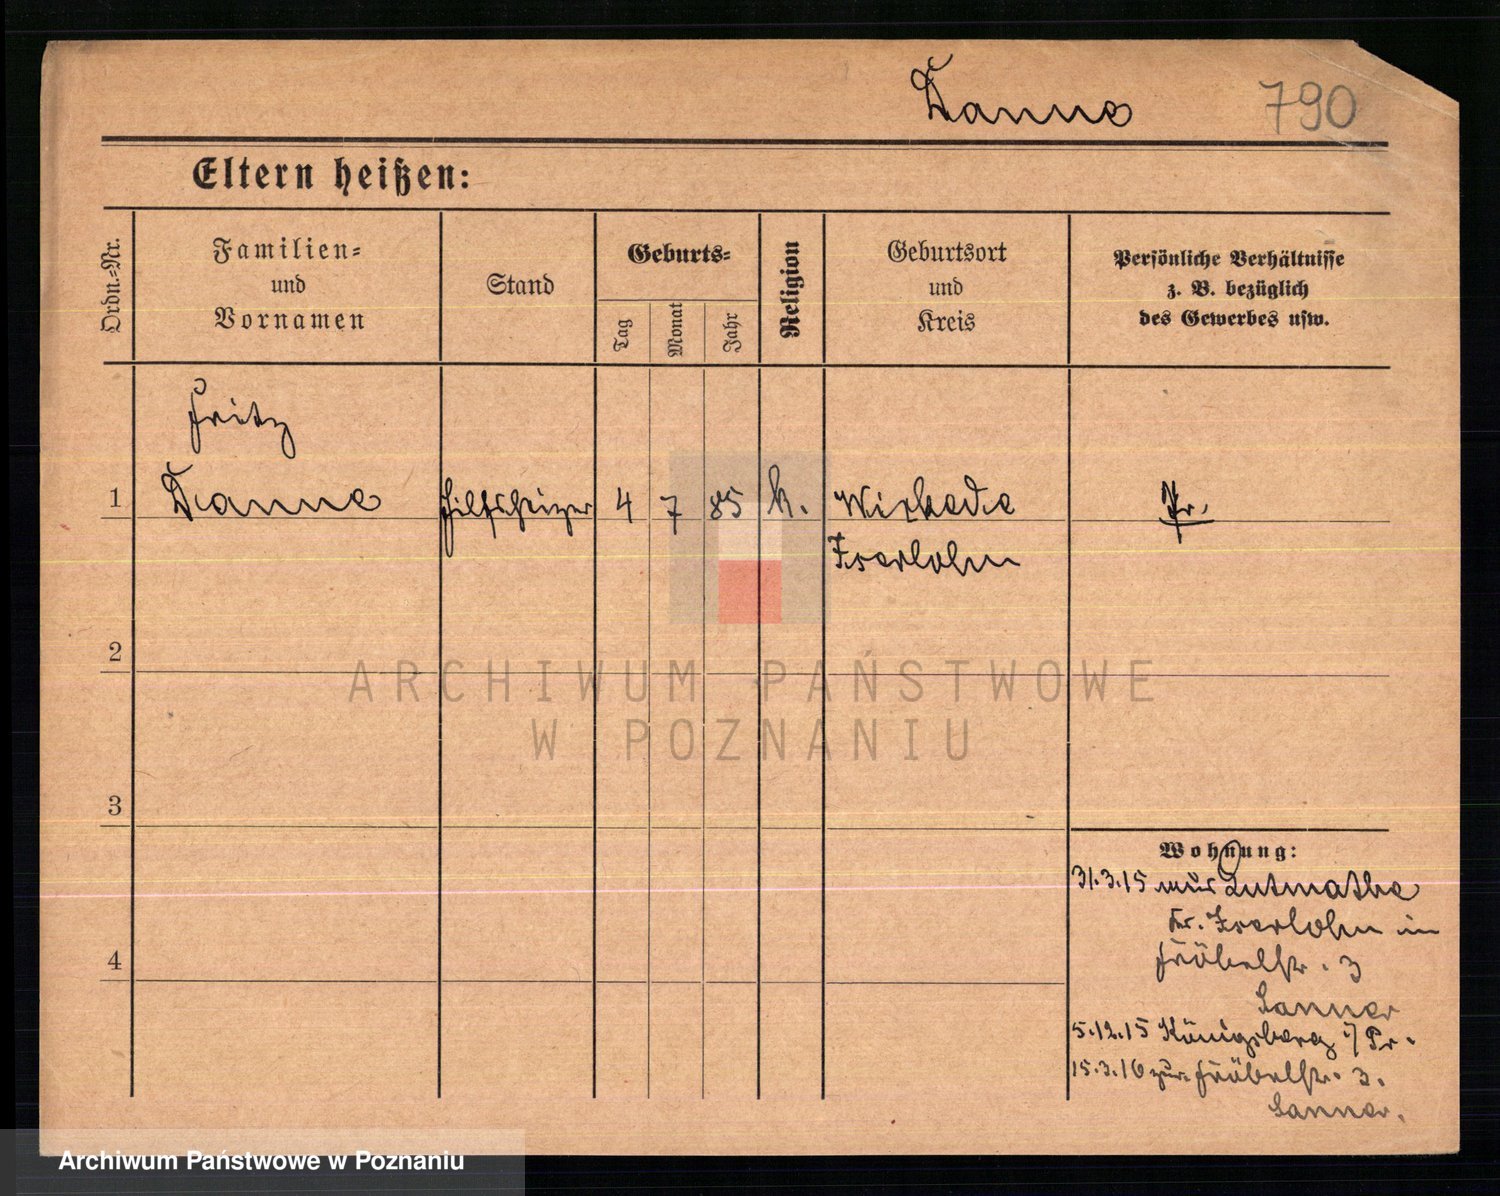 Danne 790
Eltern heißen:
Ordn.-Nr.
Familien-
und
Vornamen
Stand
Geburts-
Tag
Monat
Jahr
Religion
Geburtsort
und
Kreis
Persönliche Verhältnisse
z. B. bezüglich
des Gewerbes usw.
Fritz
1 Danne Hilfsheizer 4 7 85 k. Pr.
Iserlohn
2
ARCHIWUM PAŃSTWOWE
W POZNANIU
3
4
Wohnung:
31.3.15 Letmathe
Kr. Iserlohn in
Fröbelstr. 3
Lanner
5.12.15 Königsberg i/Pr.
15.3.16 zur. Fröbelstr. 3.
Lanner.
Archiwum Państwowe w Poznaniu